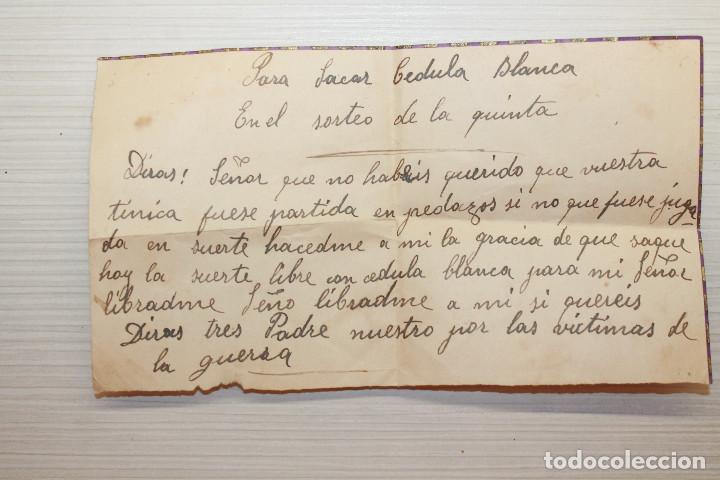 Para Sacar Cedula Blanca
En el sorteo de la quinta
Diras! Señor que no habeis querido que vuestra
tinica fuese partida en pedazos si no que fuese juga
da en suerte hacedme a mi la gracia de que saque
hoy la suerte libre con cedula blanca para mi Señor
libradme Seño libradme a mi si quereis
Diras tres Padre nuestro por las victimas de
la guerra
todocoleccion.net